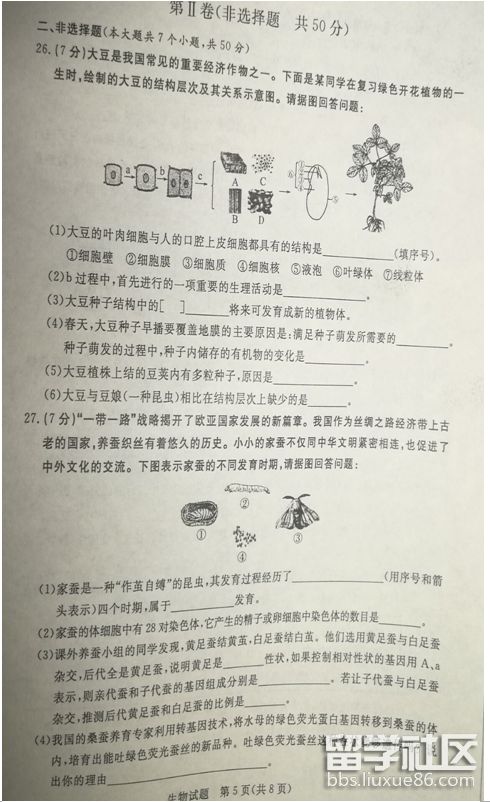 第Ⅱ卷(非选择题 共50分)
二、非选择题(本大题共7个小题,共50分)
26.(7分)大豆是我国常见的重要经济作物之一。下面是某同学在复习绿色开花植物的一
生时,绘制的大豆的结构层次及其关系示意图。请据图回答问题:
a b c
A C
B D
⑥ ⑤
(1)大豆的叶肉细胞与人的口腔上皮细胞都具有的结构是________(填序号)。
①细胞壁 ②细胞膜 ③细胞质 ④细胞核 ⑤液泡 ⑥叶绿体 ⑦线粒体
(2)b过程中,首先进行的一项重要的生理活动是________。
(3)大豆种子结构中的[ ]________将来可发育成新的植物体。
(4)春天,大豆种子早播要覆盖地膜的主要原因是:满足种子萌发所需要的________。
种子萌发的过程中,种子内储存的有机物的变化是________。
(5)大豆植株上结的豆荚内有多粒种子,原因是________。
(6)大豆与豆娘(一种昆虫)相比在结构层次上缺少的是________。
27.(7分)“一带一路”战略揭开了欧亚国家发展的新篇章。我国作为丝绸之路经济带上古
老的国家,养蚕织丝有着悠久的历史。小小的家蚕不仅同中华文明紧密相连,也促进了
中外文化的交流。下图表示家蚕的不同发育时期,请据图回答问题:
① ② ③
④
(1)家蚕是一种“作茧自缚”的昆虫,其发育过程经历了________(用序号和箭
头表示)四个时期,属于________发育。
(2)家蚕的体细胞中有28对染色体,它产生的精子或卵细胞中染色体的数目是________。
(3)课外养蚕小组的同学发现,黄足蚕结黄茧,白足蚕结白茧。他们选用黄足蚕与白足蚕
杂交,后代全是黄足蚕,说明黄足是________性状,如果控制相对性状的基因用A、a
表示,则亲代蚕和子代蚕的基因组成分别是________。若让子代蚕与白足蚕
杂交,推测后代黄足蚕和白足蚕的比例是________。
(4)我国的桑蚕养育专家利用转基因技术,将水母的绿色荧光蛋白基因转移到桑蚕的体
内,培育出能吐绿色荧光蚕丝的新品种。吐绿色荧光蚕丝这
出你的理由________
生物试题 第5页(共8页)
留学社区
bbs.liuxue86.com